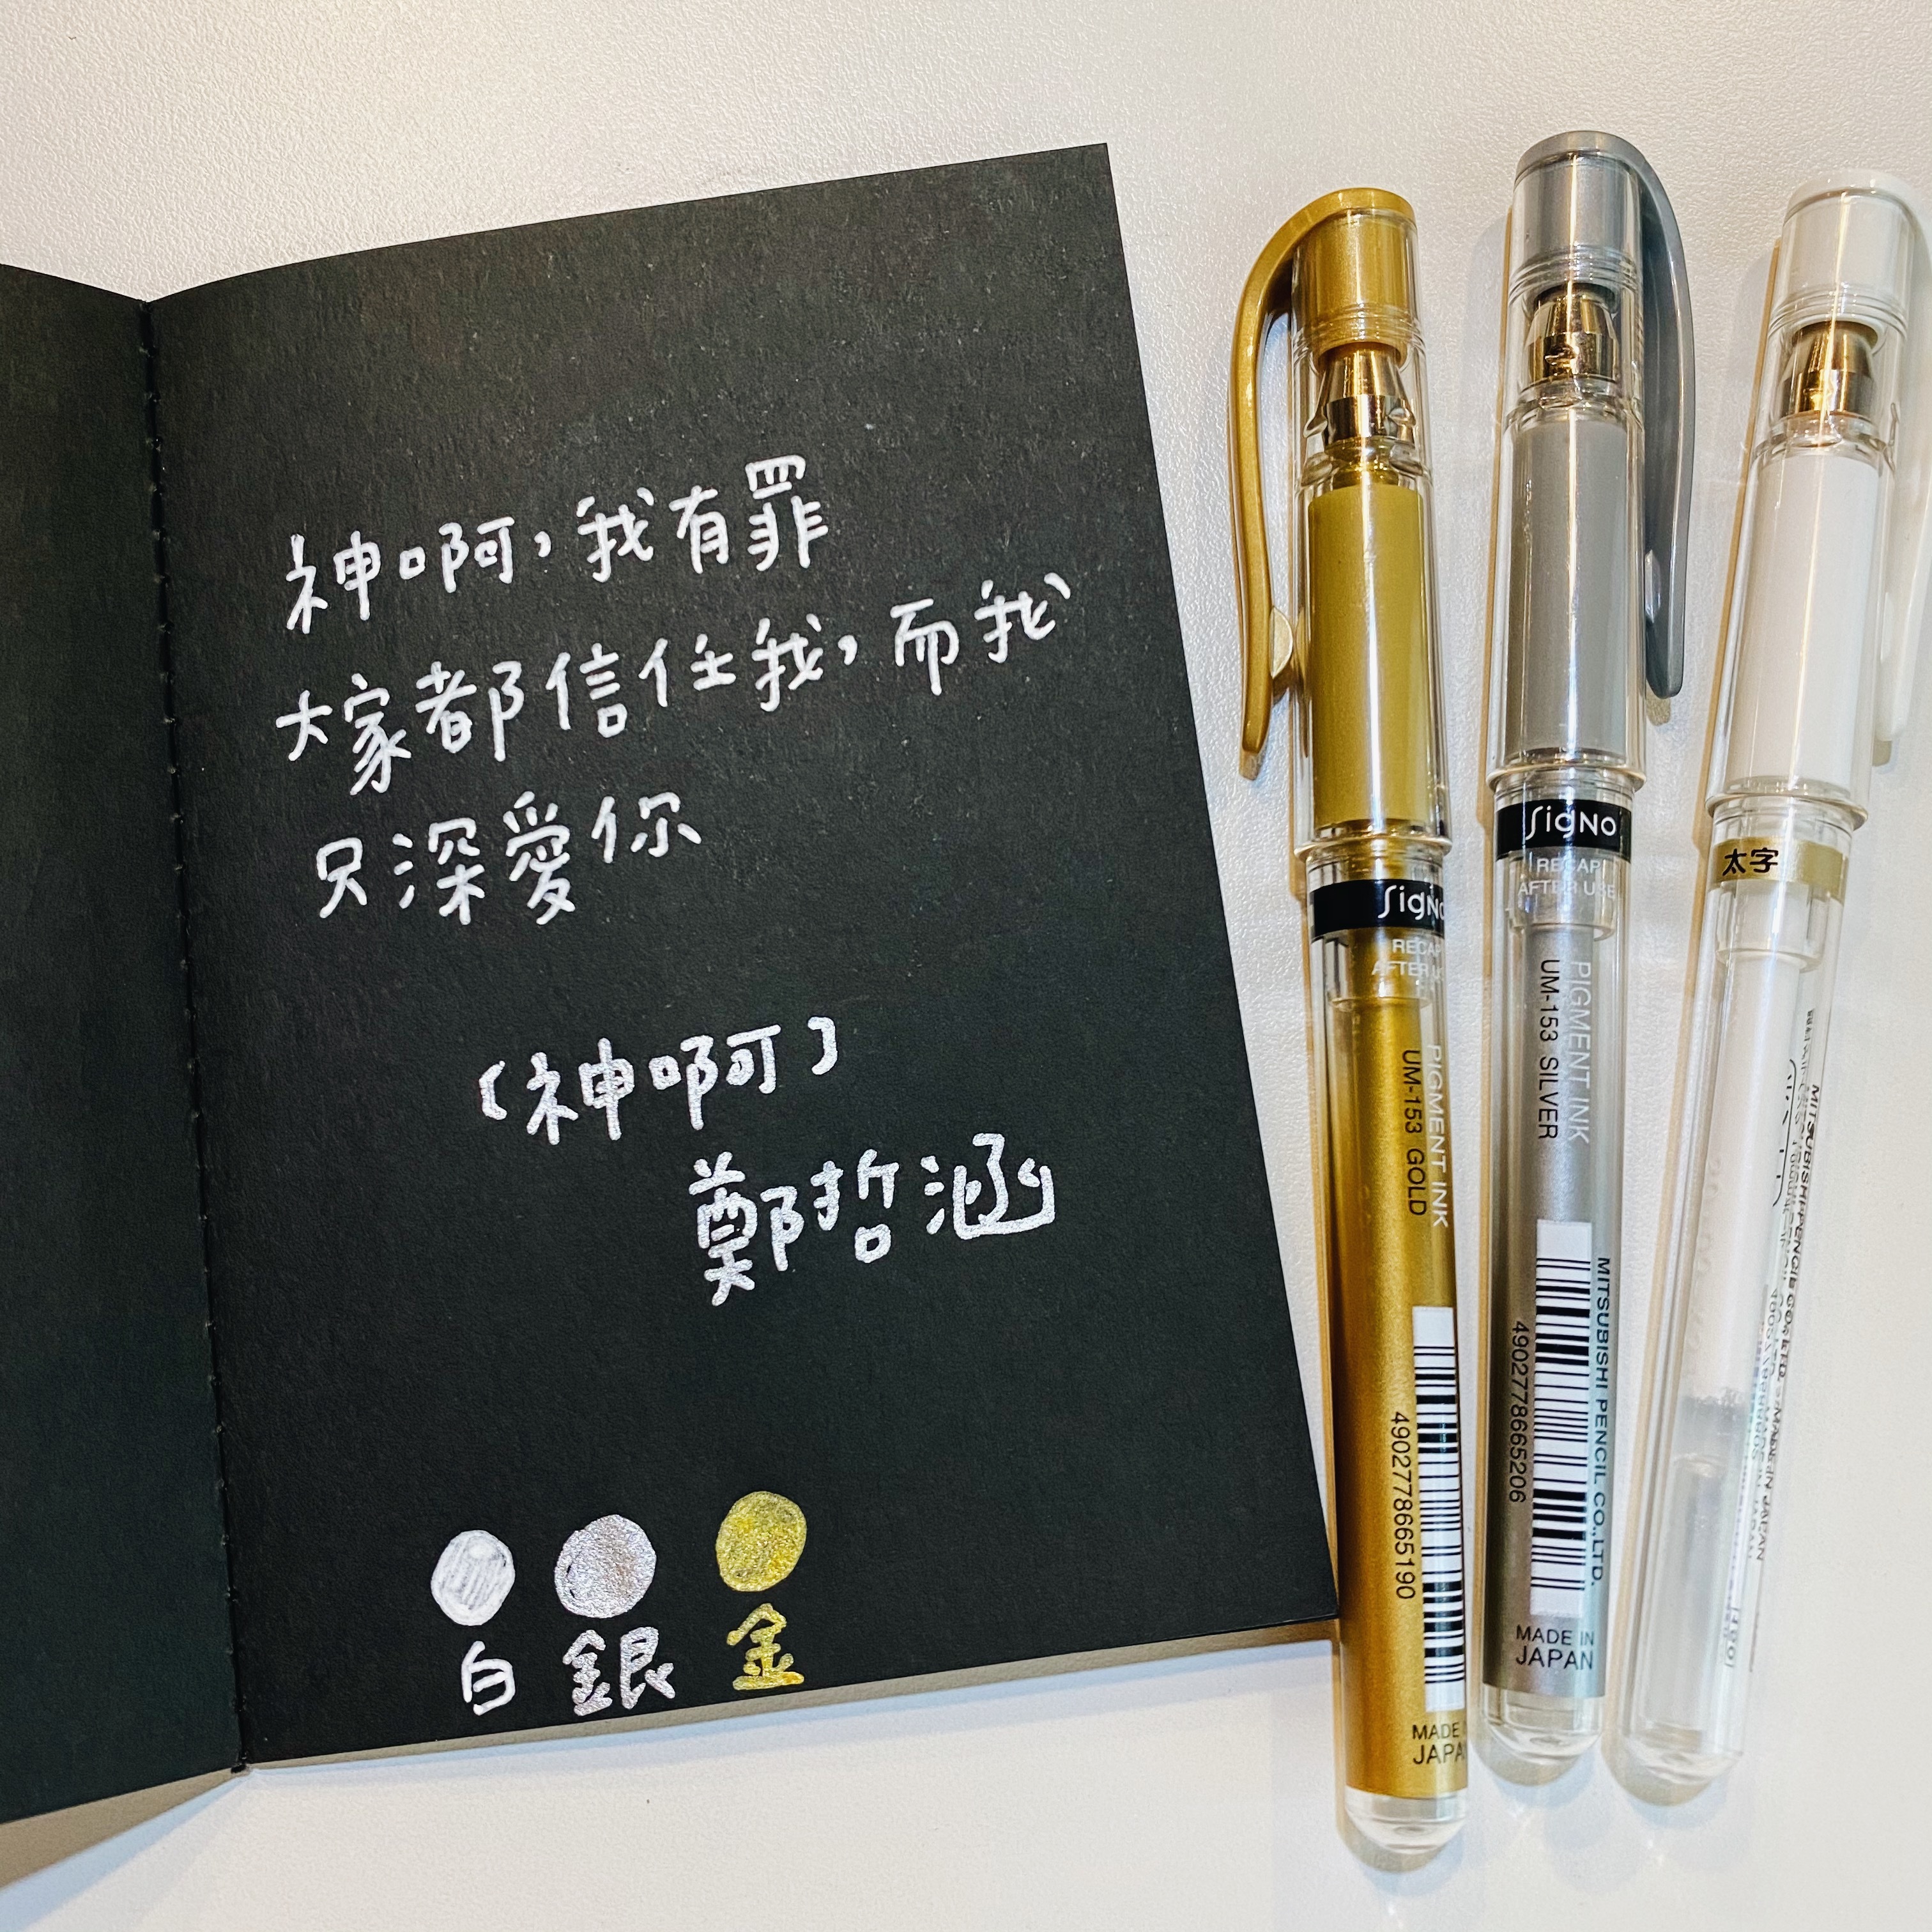 神啊，我有罪
大家都信任我，而我
只深愛你
〔神啊〕
鄭哲涵
白 銀 金
SigNo
RECAP
AFTER U
PIGMENT INK
UM-153 GOLD
4902778665190
MADE I
JAPA
SigNo
RECAP
AFTER USE
PIGMENT INK
UM-153 SILVER
MITSUBISHI PENCIL CO.,LTD.
4902778665206
MADE IN
JAPAN
太字
MITSUBISHI PENCIL CO., LTD.
MADE IN JAPAN